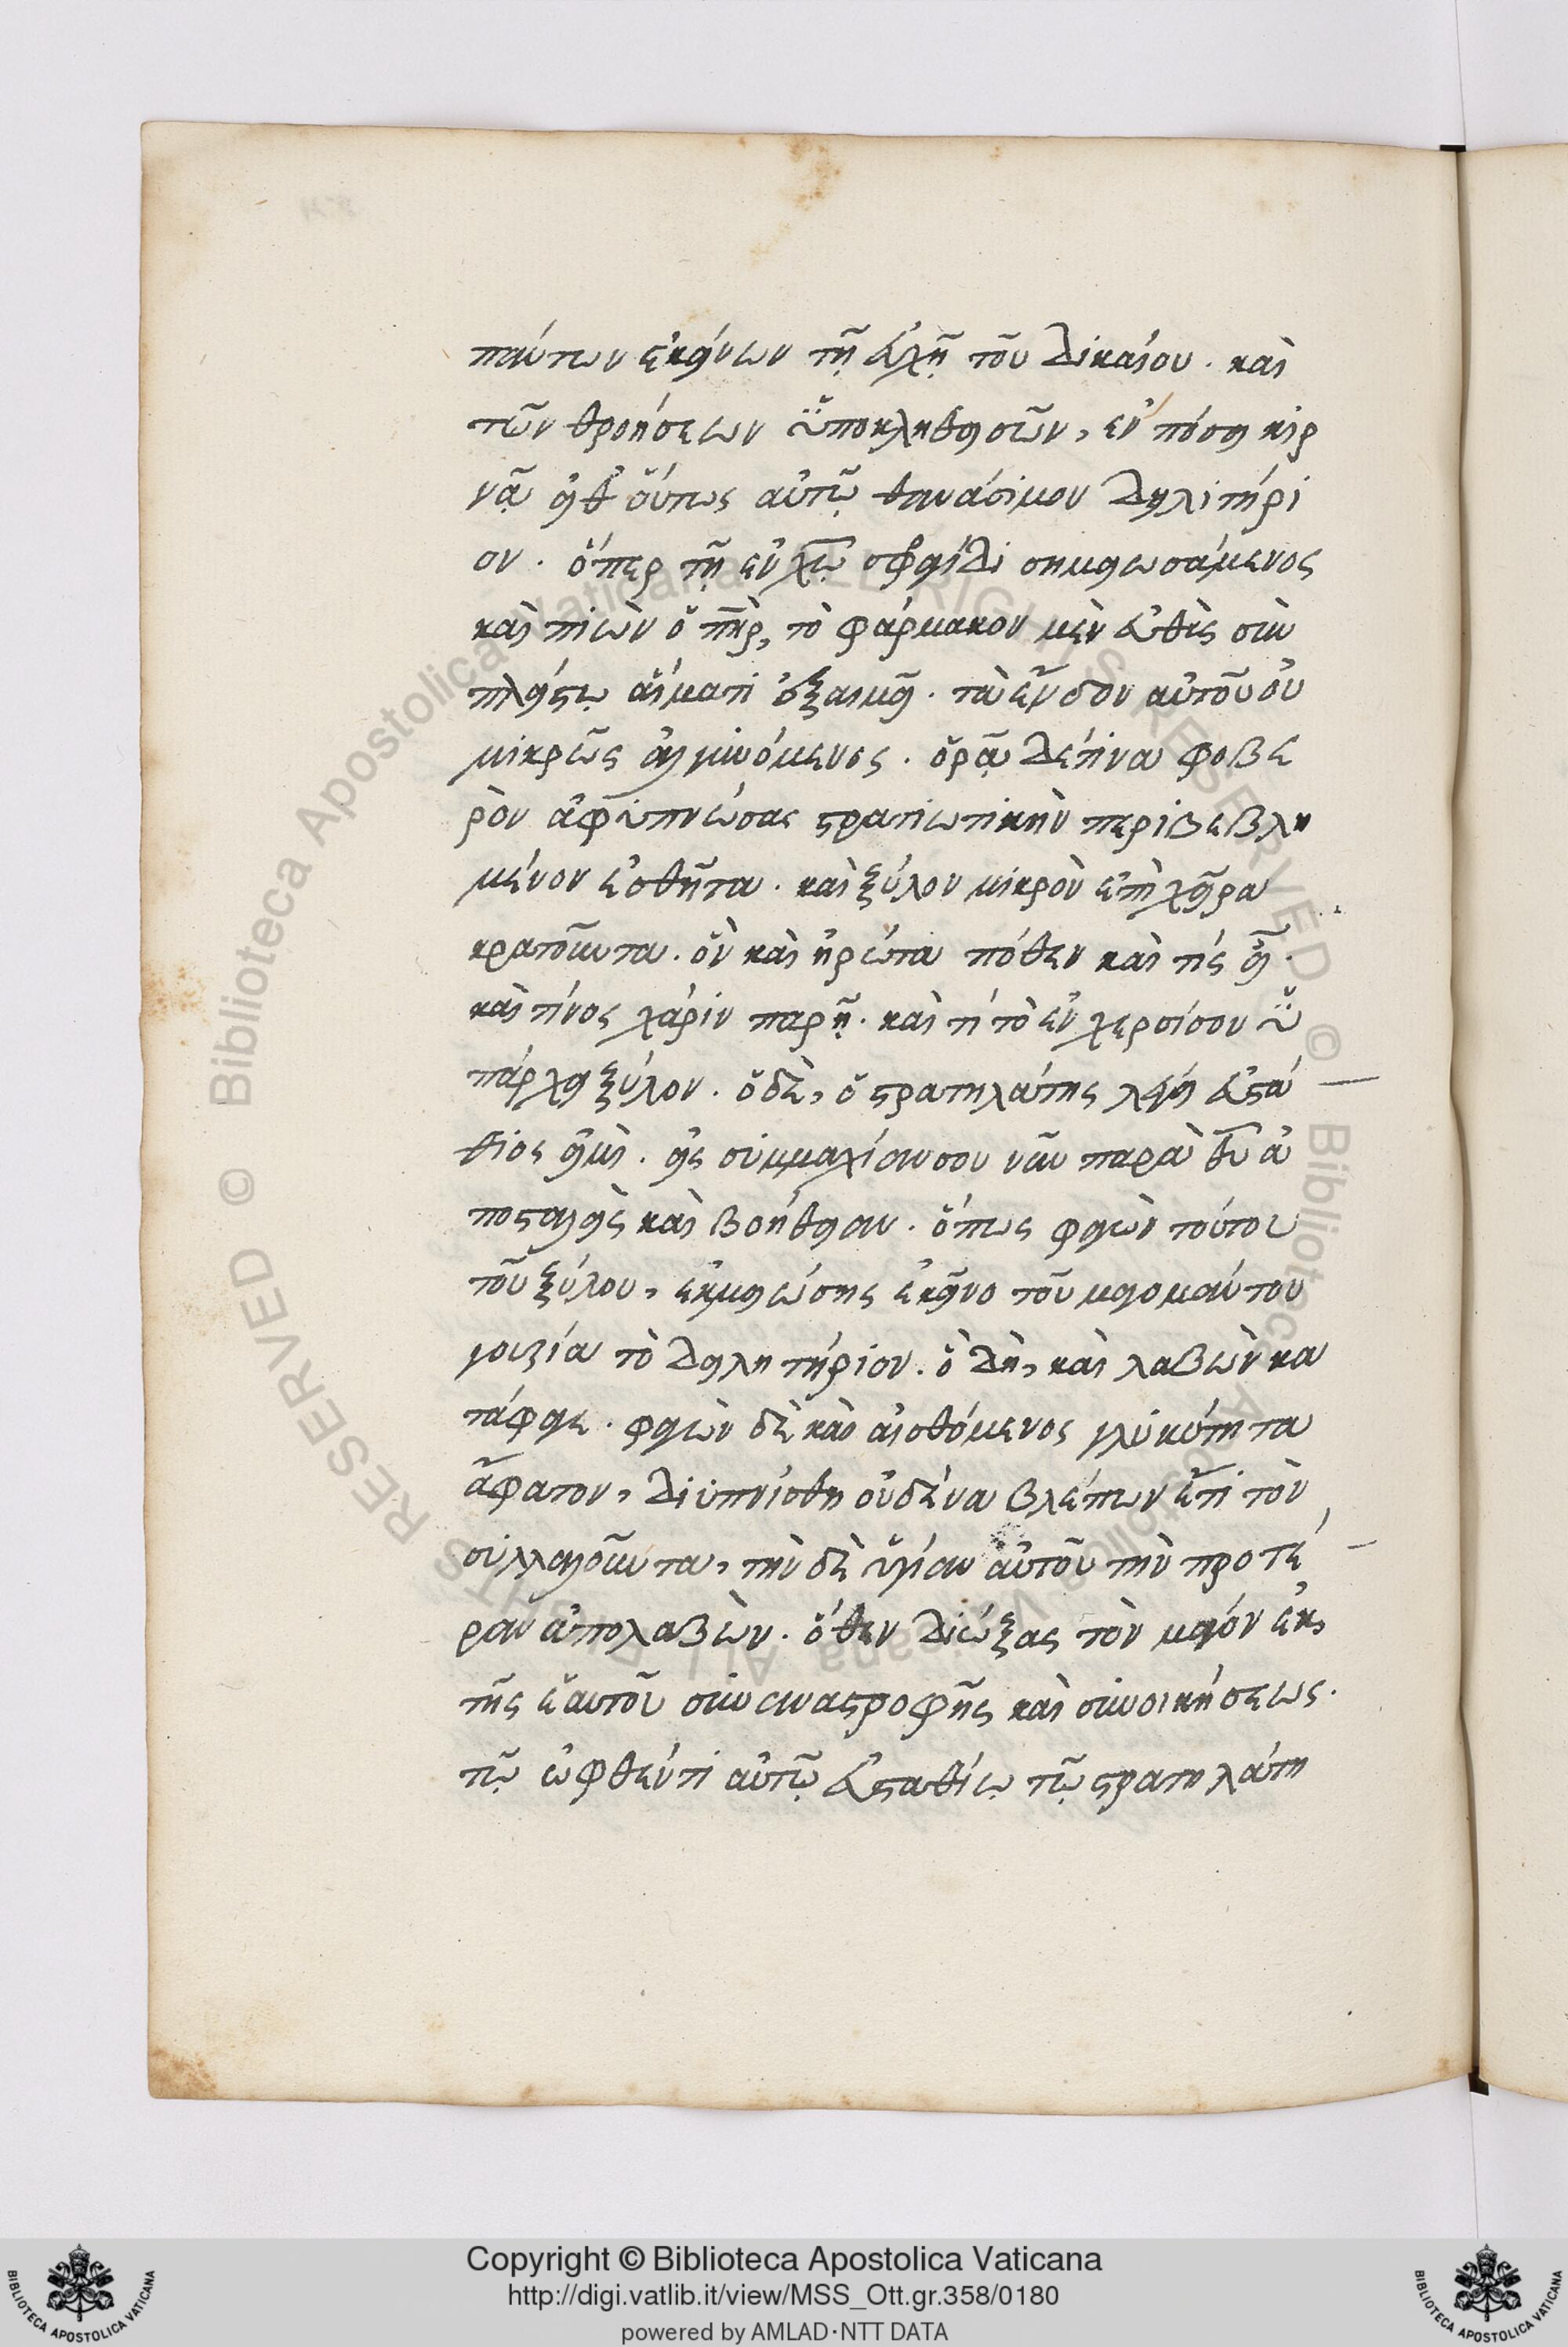 πάντων ἐκείνων τῆ εὐχῆ τοῦ δικαίου. καὶ
τῶν θροήσεων ὑποκληθεισῶν, ἐν πόσει κιρ
νᾶ εἶθ οὕτως αὐτῶ θανάσιμον δηλιτήρι
ον. ὅπερ τῆ ἐν χω σφραγίδι σημειωσάμενος
καὶ πιὼν ὁ πηρ, τὸ φάρμακον μὲν εὐθὺς σὺν
πλείστω αἵματι ἐξαιμεῖ. τὰ ἔνδον αὐτοῦ οὐ
μικρῶς ἀλγυνόμενος. ὁρᾶ δέ τινα φοβε
ρὸν ἀφυπνώσας στρατιωτικὴν περιβεβλη
μένον ἐσθῆτα. καὶ ξύλον μικρὸν ἐπὶ χεῖρα
κρατοῦντα. ὃν καὶ ἠρώτα πόθεν καὶ τίς εἶ.
καὶ τίνος χάριν παρῆ. καὶ τί τὸ ἐν χερσί σου ὑ
πάρχει ξύλον. ὁ δὲ, ὁ στρατηλάτης λέγει εὐστά
θιος εἰμὶ. εἰς συμμαχίαν σου νῦν παρὰ θυ ἀ
ποσταλεὶς καὶ βοήθειαν. ὅπως φαγὼν τούτου
τοῦ ξύλου, ἐκμειώσης ἐκεῖνο τοῦ μαγομάντου
γοιζία τὸ δηλητήριον. ὃ δὴ, καὶ λαβὼν κα
τάφαγε. φαγὼν δὲ καὶ αἰσθόμενος γλυκύτητα
ἄφατον, διυπνίσθη οὐδένα βλέπων ἔτι τὸν
συλλαλοῦντα, τὴν δὲ ὑγίαν αὐτοῦ τὴν προτέ
ραν ἀπολαβὼν. ὅθεν διώξας τὸν μάγον ἐκ
τῆς ἑαυτοῦ συναναστροφῆς καὶ συνοικήσεως.
τῶ ὀφθέντι αὐτῶ εὐσταθίω τῶ στρατηλάτη
Copyright © Biblioteca Apostolica Vaticana
http://digi.vatlib.it/view/MSS_Ott.gr.358/0180
powered by AMLAD·NTT DATA
BIBLIOTECA APOSTOLICA VATICANA
BIBLIOTECA APOSTOLICA VATICANA